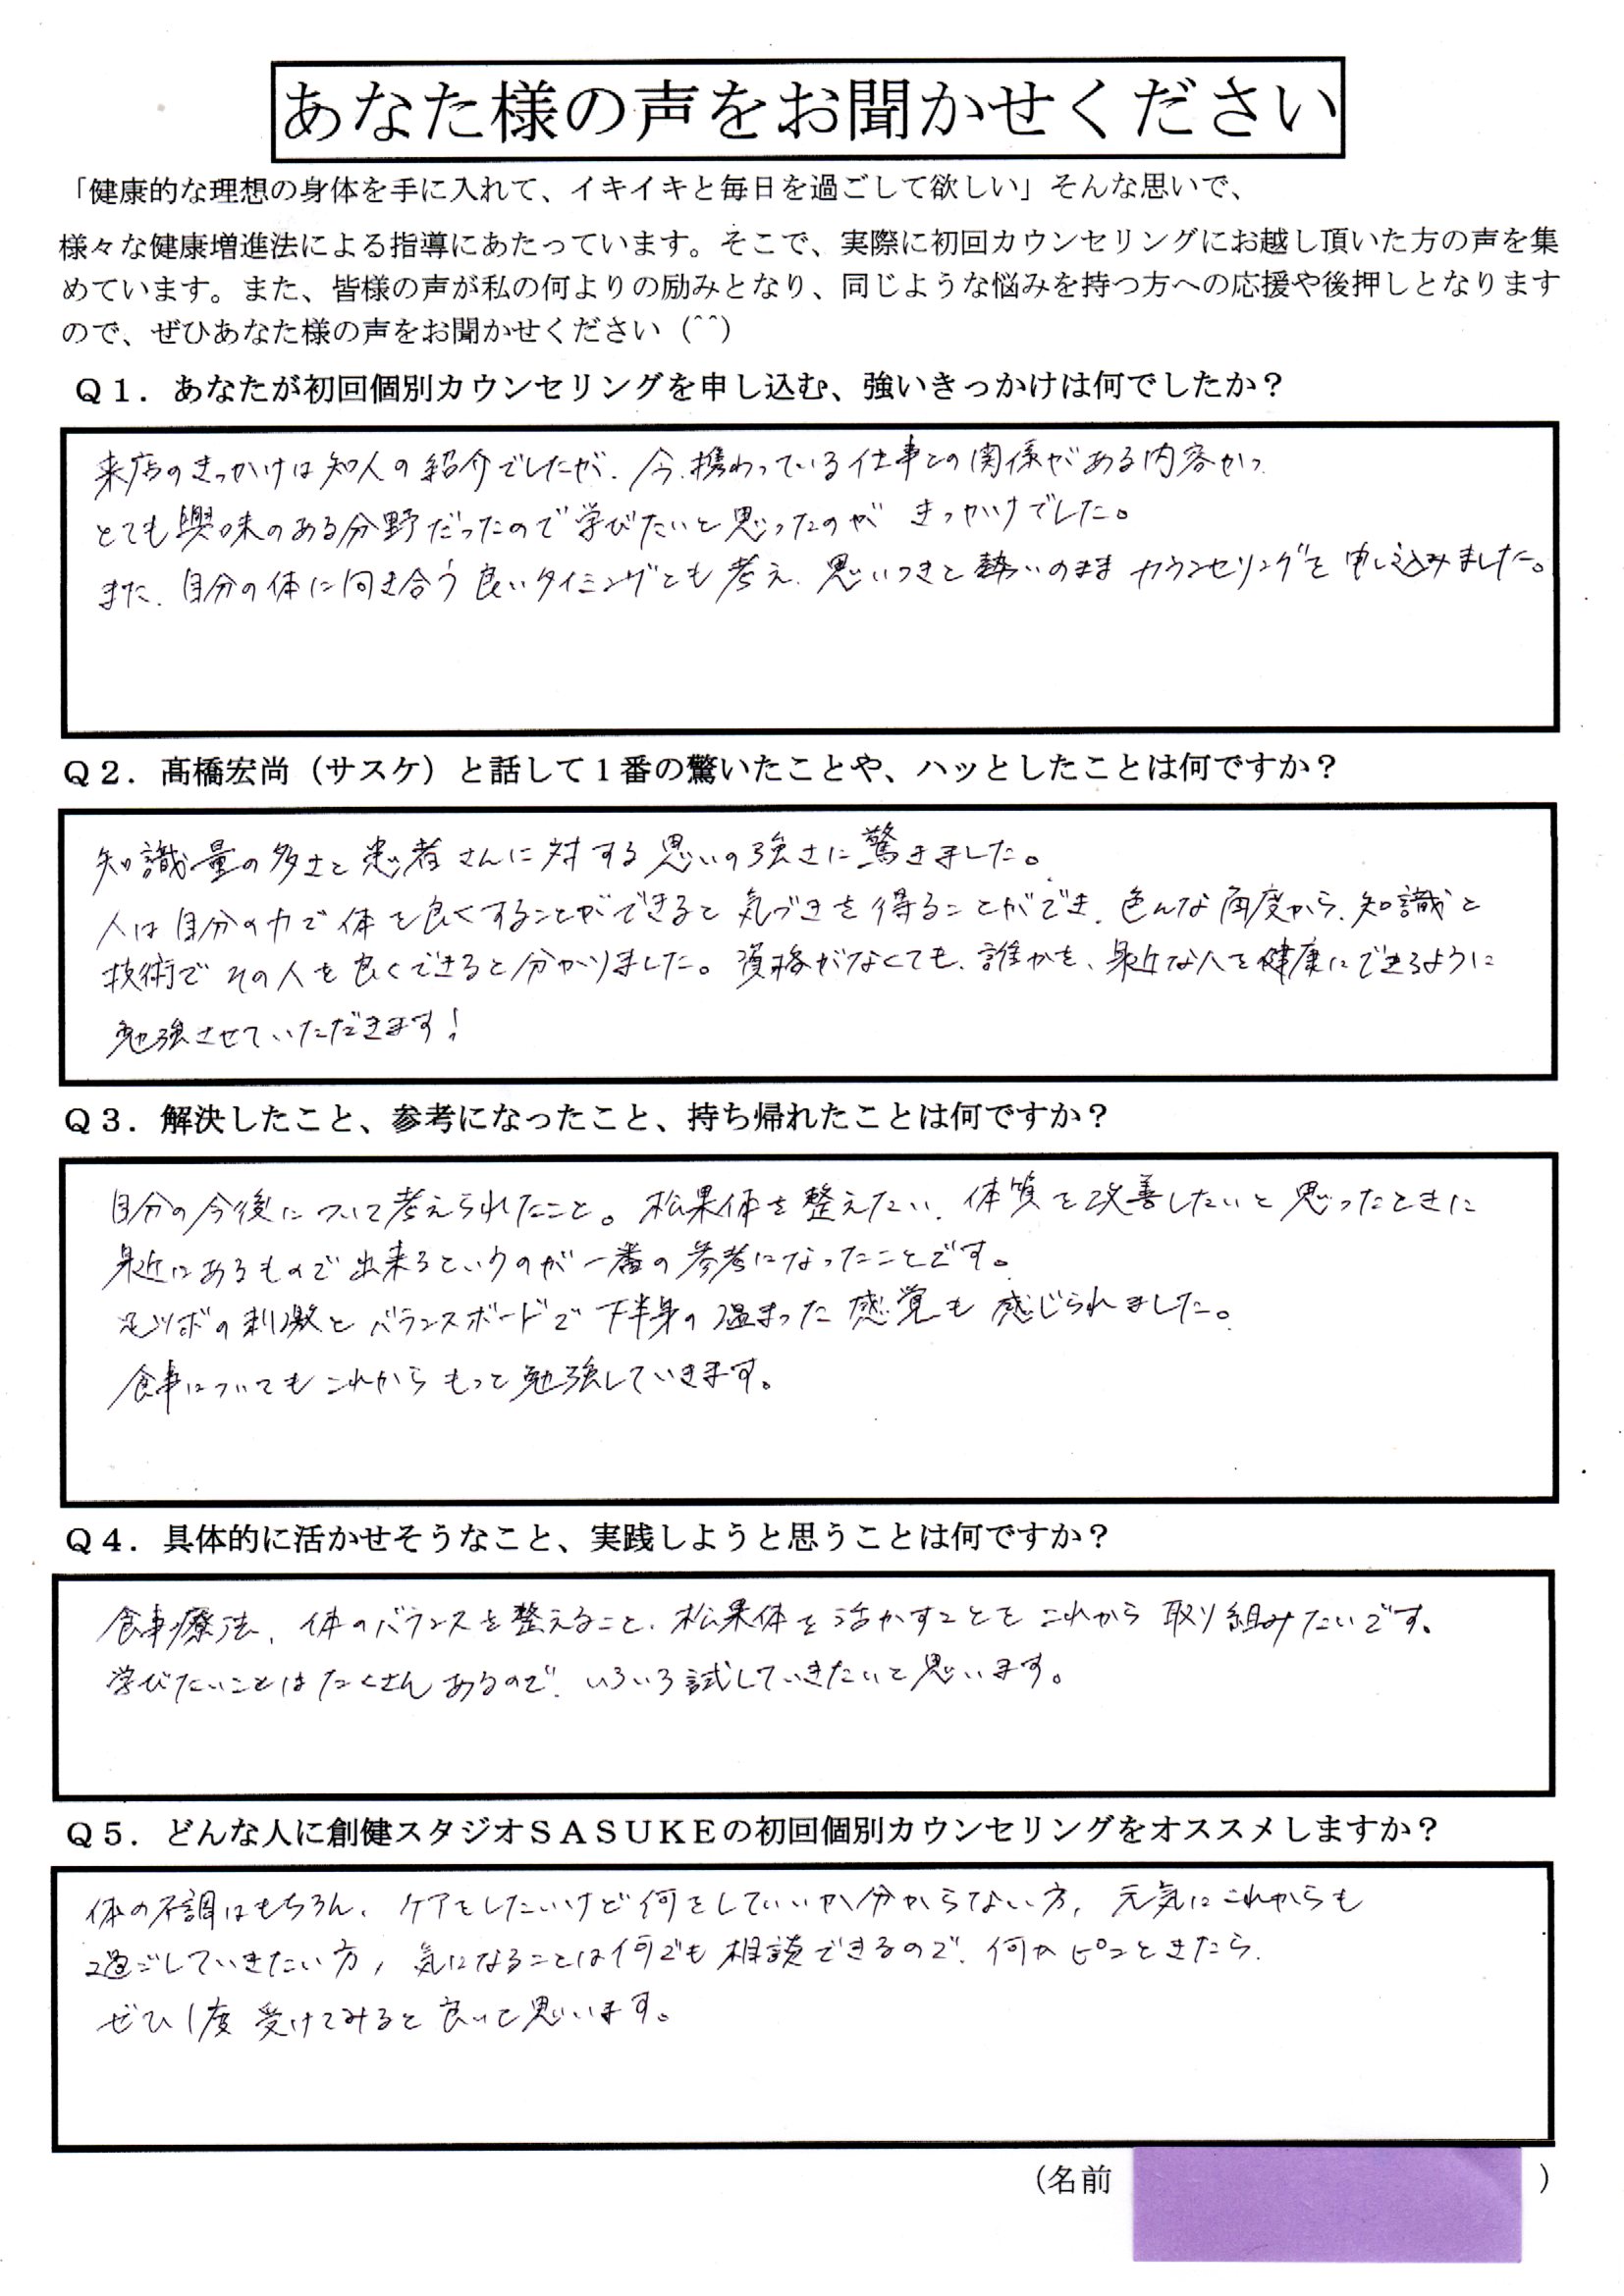 あなた様の声をお聞かせください
「健康的な理想の身体を手に入れて、イキイキと毎日を過ごして欲しい」そんな思いで、
様々な健康増進法による指導にあたっています。そこで、実際に初回カウンセリングにお越し頂いた方の声を集
めています。また、皆様の声が私の何よりの励みとなり、同じような悩みを持つ方への応援や後押しとなります
ので、ぜひあなた様の声をお聞かせください（^^）
Ｑ１．あなたが初回個別カウンセリングを申し込む、強いきっかけは何でしたか？
来店のきっかけは知人の紹介でしたが、今、携わっている仕事との関係がある内容かつ
とても興味のある分野だったので学びたいと思ったのがきっかけでした。
また、自分の体に向き合う良いタイミングとも考え、思いつきと勢いのままカウンセリングを申し込みました。
Ｑ２．髙橋宏尚（サスケ）と話して１番の驚いたことや、ハッとしたことは何ですか？
知識量の多さと患者さんに対する思いの強さに驚きました。
人は自分の力で体を良くすることができると気づきを得ることができ、色んな角度から、知識と
技術でその人を良くできると分かりました。資格がなくても、誰かを、身近な人を健康にできるように
勉強させていただきます！
Ｑ３．解決したこと、参考になったこと、持ち帰れたことは何ですか？
自分の今後について考えられたこと。松果体を整えたい、体質を改善したいと思ったときに
身近にあるもので出来るというのが一番の参考になったことです。
足ツボの刺激とバランスボードで下半身の温まった感覚も感じられました。
食事についてもこれからもっと勉強していきます。
Ｑ４．具体的に活かせそうなこと、実践しようと思うことは何ですか？
食事療法、体のバランスを整えること、松果体を活かすことをこれから取り組みたいです。
学びたいことはたくさんあるので、いろいろ試していきたいと思います。
Ｑ５．どんな人に創健スタジオＳＡＳＵＫＥの初回個別カウンセリングをオススメしますか？
体の不調はもちろん、ケアをしたいけど何をしていいか分からない方、元気にこれからも
過ごしていきたい方、気になることは何でも相談できるので、何かピンときたら、
ぜひ1度受けてみると良いと思います。
（名前　　　　　）